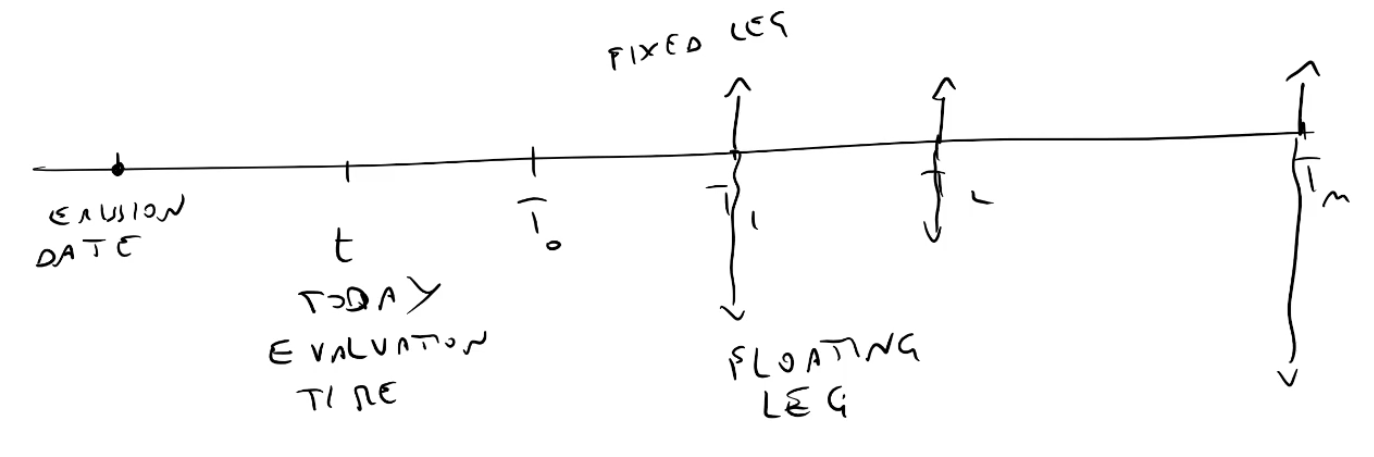 FIXED LEG
EMUSION
DATE
t
TODAY
EVALUATION
TIME
T₀
T₁
T₂
Tₘ
FLOATING
LEG